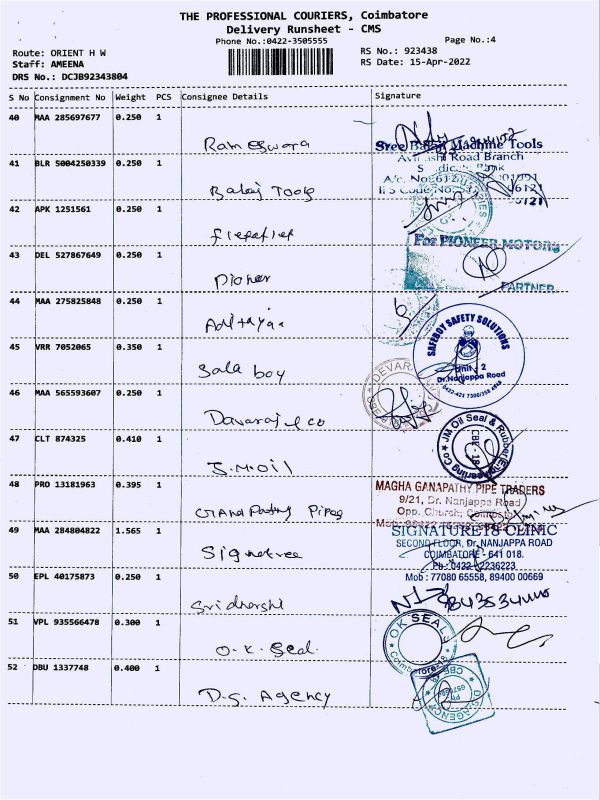 THE PROFESSIONAL COURIERS, Coimbatore
Delivery Runsheet - CMS
Phone No.:0422-3505555
Page No.:4
Route: ORIENT H W
RS No.: 923438
Staff: AMEENA
RS Date: 15-Apr-2022
DRS No.: DCJB92343804
S No Consignment No Weight PCS Consignee Details Signature
40 MAA 285697677 0.250 1
Rameswara
Sree Balaji Machine Tools
41 BLR 5004250339 0.250 1
Road Branch
Balaji Tools
42 APK 1251561 0.250 1
For PIONEER MOTORS
43 DEL 527867649 0.250 1
Pioneer
PARTNER
44 MAA 275825848 0.250 1
Adithyaa
SAFEBOY SAFETY SOLUTIONS
45 VRR 7052065 0.350 1
Unit - 2
Dr.Nanjappa Road
Sala boy
46 MAA 565593607 0.250 1
DEVARA
Davaraj & co
47 CLT 874325 0.410 1
JM Oil Seal & Rubber Engineering Co
CBE - 18
J.M.OIL
48 PRO 13181963 0.395 1
MAGHA GANAPATHY PIPE TRADERS
9/21, Dr. Nanjappa Road
Opp. Church, Coimbatore
Ganapathy Pipes
49 MAA 284804822 1.565 1
SIGNATURE18 CLINIC
SECOND FLOOR, Dr. NANJAPPA ROAD
COIMBATORE - 641 018.
Signatree
Ph : 0422-2236223
Mob : 77080 65558, 89400 00669
50 EPL 40175873 0.250 1
Sridharshi
51 VPL 935566478 0.300 1
OK SEAL
Coimbatore-18
O.K. Seal
52 DBU 1337748 0.400 1
D.S. AGENCY
D.S. Agency